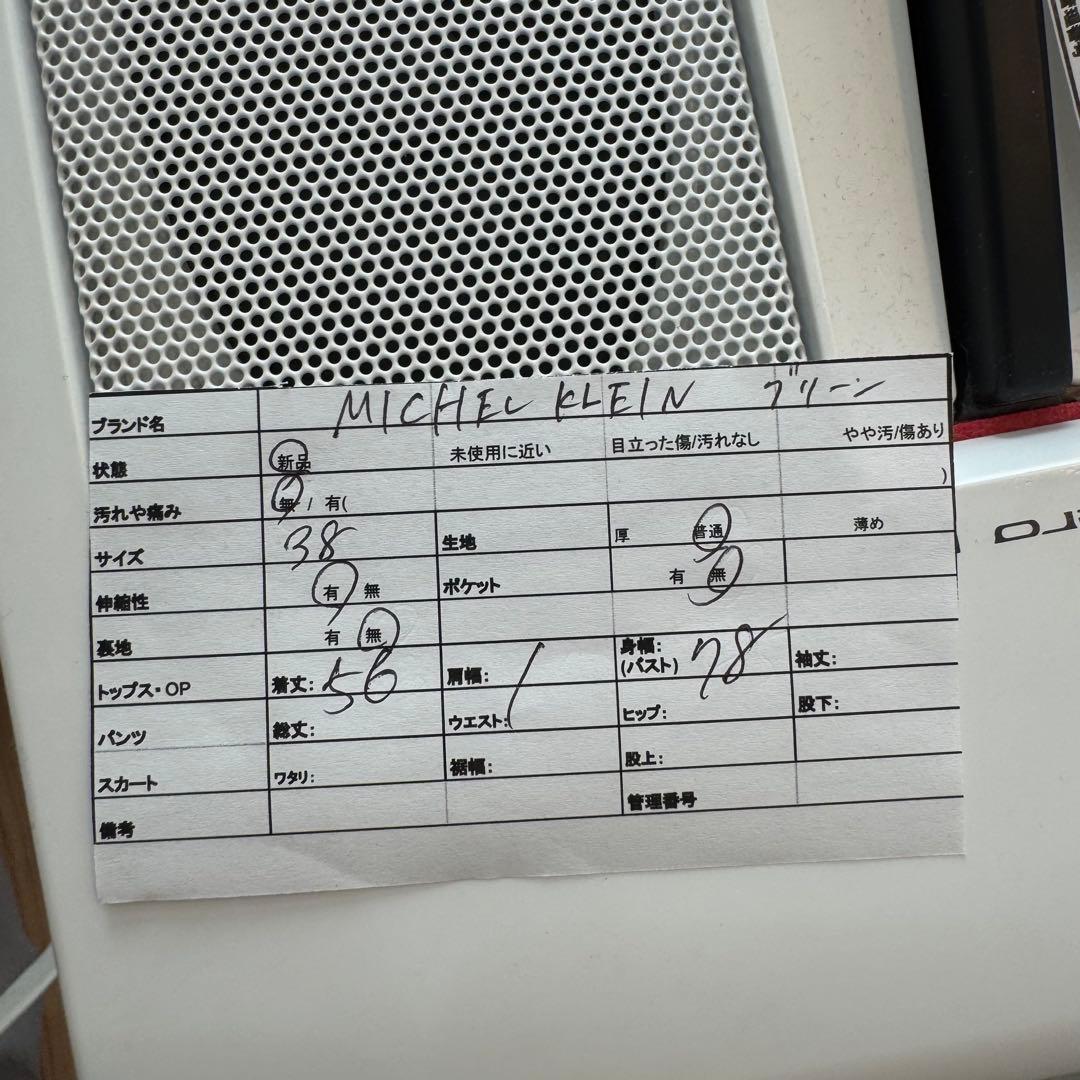 ブランド名 MICHEL KLEIN グリーン
状態 新品 未使用に近い 目立った傷/汚れなし やや汚/傷あり
汚れや痛み 無 / 有( )
サイズ 38 生地 厚 普通 薄め
伸縮性 有 無 ポケット 有 無
裏地 有 無
トップス・OP 着丈: 56 肩幅: / 身幅:(バスト) 78 袖丈:
パンツ 総丈: ウエスト: ヒップ: 股下:
スカート ワタリ: 裾幅: 股上:
備考 管理番号